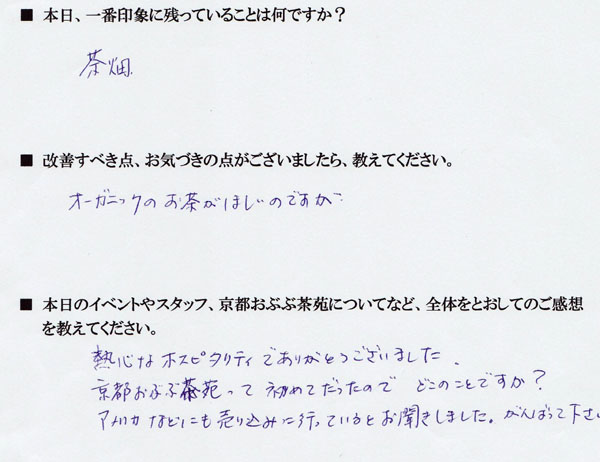 ■ 本日、一番印象に残っていることは何ですか？
茶畑
■ 改善すべき点、お気づきの点がございましたら、教えてください。
オーガニックのお茶がほしいのですが
■ 本日のイベントやスタッフ、京都おぶぶ茶苑についてなど、全体をとおしてのご感想
を教えてください。
熱心なホスピタリティでありがとうございました、
京都おぶぶ茶苑って初めてだったのでどこのことですか？
アメリカなどにも売り込みに行っているとお聞きしました。がんばって下さい